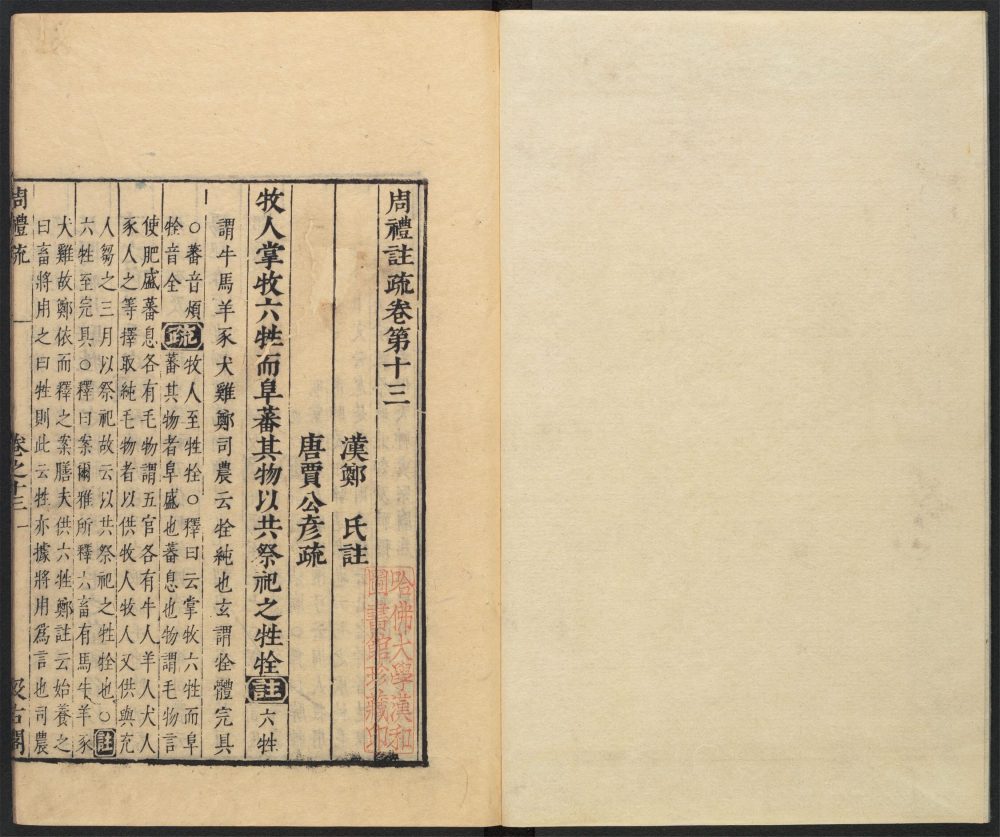 周禮註疏卷第十三
漢鄭氏註
唐賈公彥疏
牧人掌牧六牲而阜蕃其物以共祭祀之牲牷註六牲
謂牛馬羊豕犬雞鄭司農云牷純也玄謂牷體完具
○蕃音煩
牷音全
疏
牧人至牲牷○釋曰云掌牧六牲而阜
蕃其物者阜盛也蕃息也物謂毛物言
使肥盛蕃息各有毛物謂五官各有牛人羊人犬人
豕人之等擇取純毛物者以供牧人牧人又供與充
人芻之三月以祭祀故云以共祭祀之牲牷也○註
六牲至完具○釋曰案爾雅所釋六畜有馬牛羊豕
犬雞故鄭依而釋之案膳夫供六牲鄭註云始養之
曰畜將用之曰牲則此云牲亦據將用爲言也司農
周禮疏 卷之十三 一 汲古閣
哈佛大學漢和
圖書館珍藏印